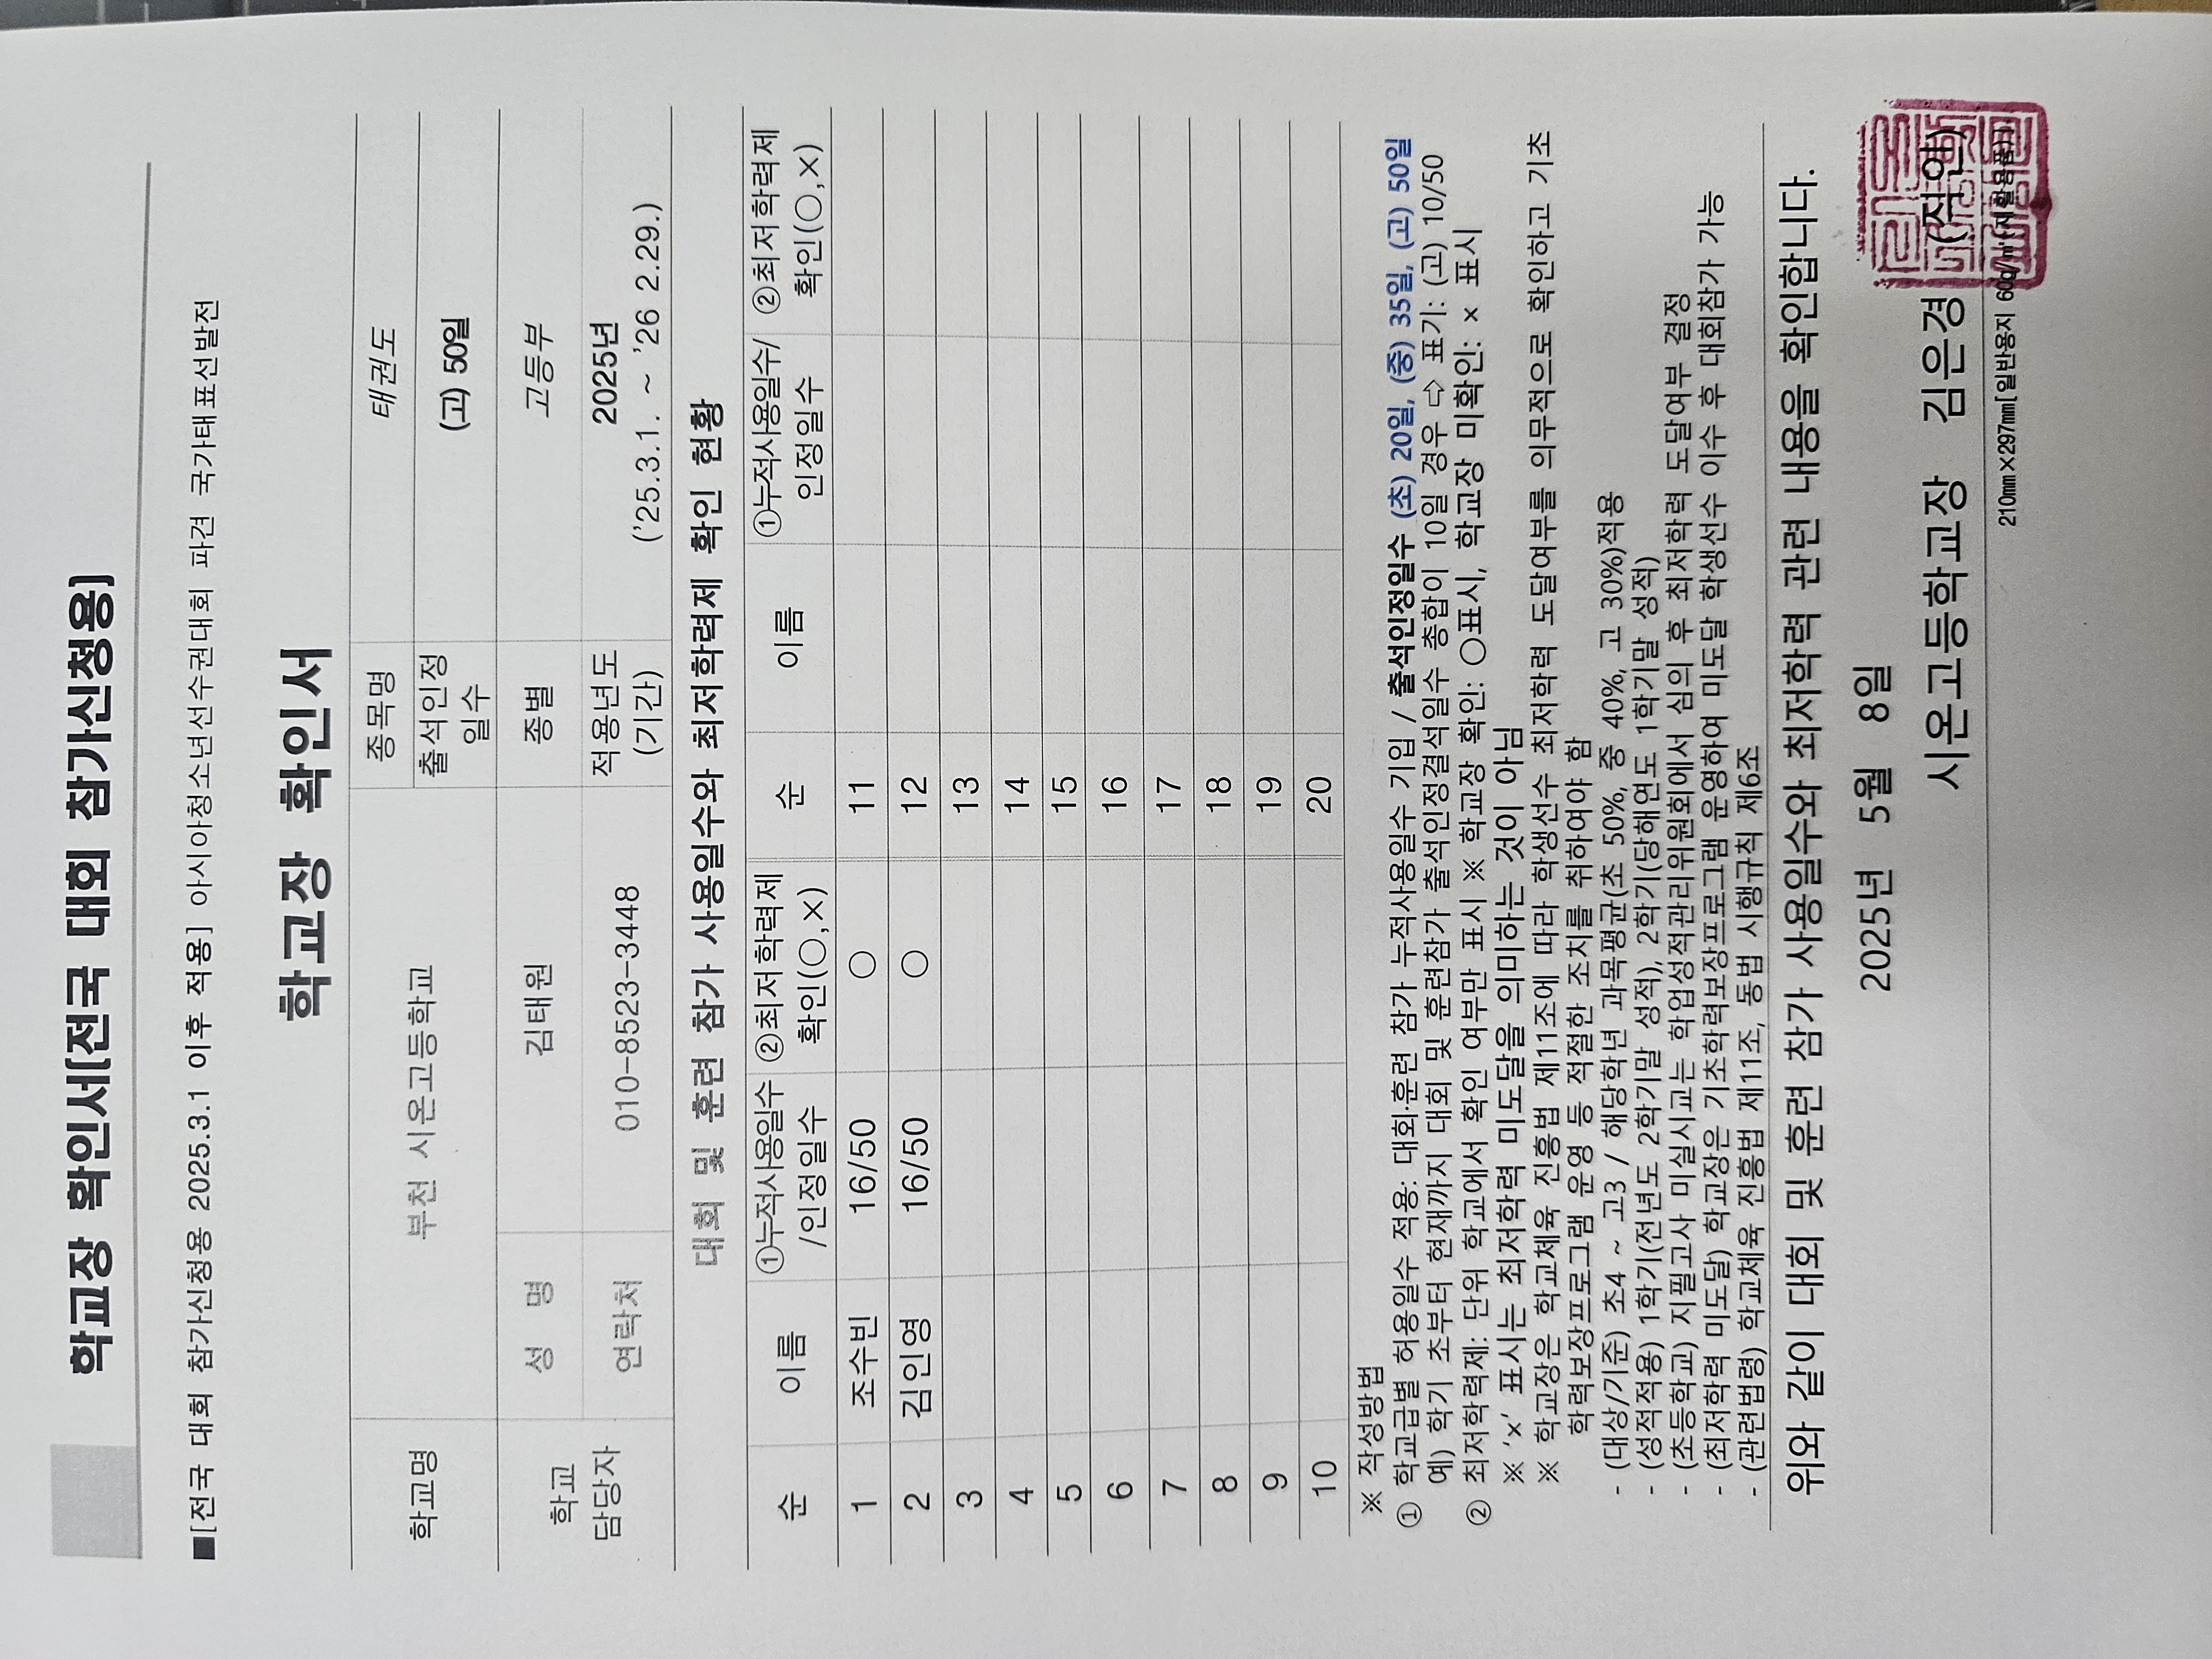 학교장 확인서[전국 대회 참가신청용]
■[전국 대회 참가신청용 2025.3.1 이후 적용] 아시아청소년선수권대회 파견 국가태표선발전
학교장 확인서
학교명 부천 시온고등학교 종목명 태권도
출석인정 일수 (고) 50일
학교 담당자 성 명 김태원 종별 고등부
연락처 010-8523-3448 적용년도 (기간) 2025년 ('25.3.1. ~ '26 2.29.)
대회 및 훈련 참가 사용일수와 최저학력제 확인 현황
순 이름 ①누적사용일수 /인정일수 ②최저학력제 확인(○,×) 순 이름 ①누적사용일수/ 인정일수 ②최저학력제 확인(○,×)
1 조수빈 16/50 ○ 11
2 김인영 16/50 ○ 12
3 13
4 14
5 15
6 16
7 17
8 18
9 19
10 20
※ 작성방법
① 학교급별 허용일수 적용: 대회·훈련 참가 누적사용일수 기입 / 출석인정일수 (초) 20일, (중) 35일, (고) 50일
예) 학기 초부터 현재까지 대회 및 훈련참가 출석인정결석일수 총합이 10일 경우 ⇨ 표기: (고) 10/50
② 최저학력제: 단위 학교에서 확인 여부만 표시 ※ 학교장 확인: ○표시, 학교장 미확인: × 표시
※ '×' 표시는 최저학력 미도달을 의미하는 것이 아님
※ 학교장은 학교체육 진흥법 제11조에 따라 학생선수 최저학력 도달여부를 의무적으로 확인하고 기초
학력보장프로그램 운영 등 적절한 조치를 취하여야 함
- (대상/기준) 초4 ~ 고3 / 해당학년 과목평균(초 50%, 중 40%, 고 30%)적용
- (성적적용) 1학기(전년도 2학기말 성적), 2학기(당해연도 1학기말 성적)
- (초등학교) 지필고사 미실시교는 학업성적관리위원회에서 심의 후 최저학력 도달여부 결정
- (최저학력 미도달) 학교장은 기초학력보장프로그램 운영하여 미도달 학생선수 이수 후 대회참가 가능
- (관련법령) 학교체육 진흥법 제11조, 동법 시행규칙 제6조
위와 같이 대회 및 훈련 참가 사용일수와 최저학력 관련 내용을 확인합니다.
2025년 5월 8일
시온고등학교장 김은경 (직인)
210mm×297mm[일반용지 60g/㎡(재활용품)]